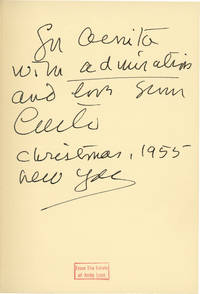 For Aenita
with admiration
and love from
christmas, 1955
new york
From The Estate
of Anita Loos